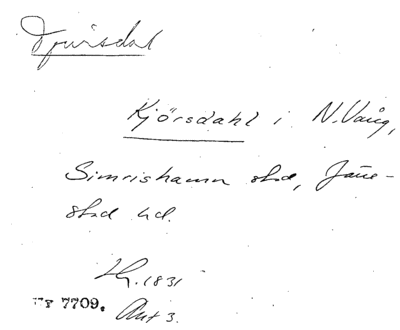 Djursdal
Kjörsdahl i N. Vång,
Simrishamn stad, Järre-
stad hd.
1831
Nr 7709. Ant 3.